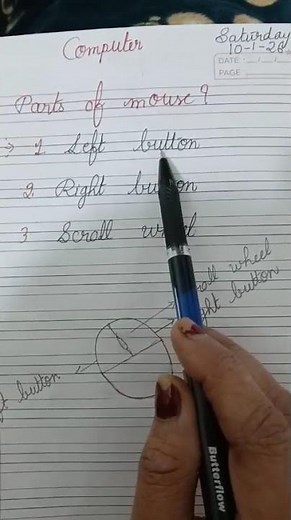 Computer
Saturday
10-1-26
DATE
PAGE
Parts of mouse?
→ 1. Left button
2. Right button
3 Scroll wheel
wheel
button
button
Butterflow